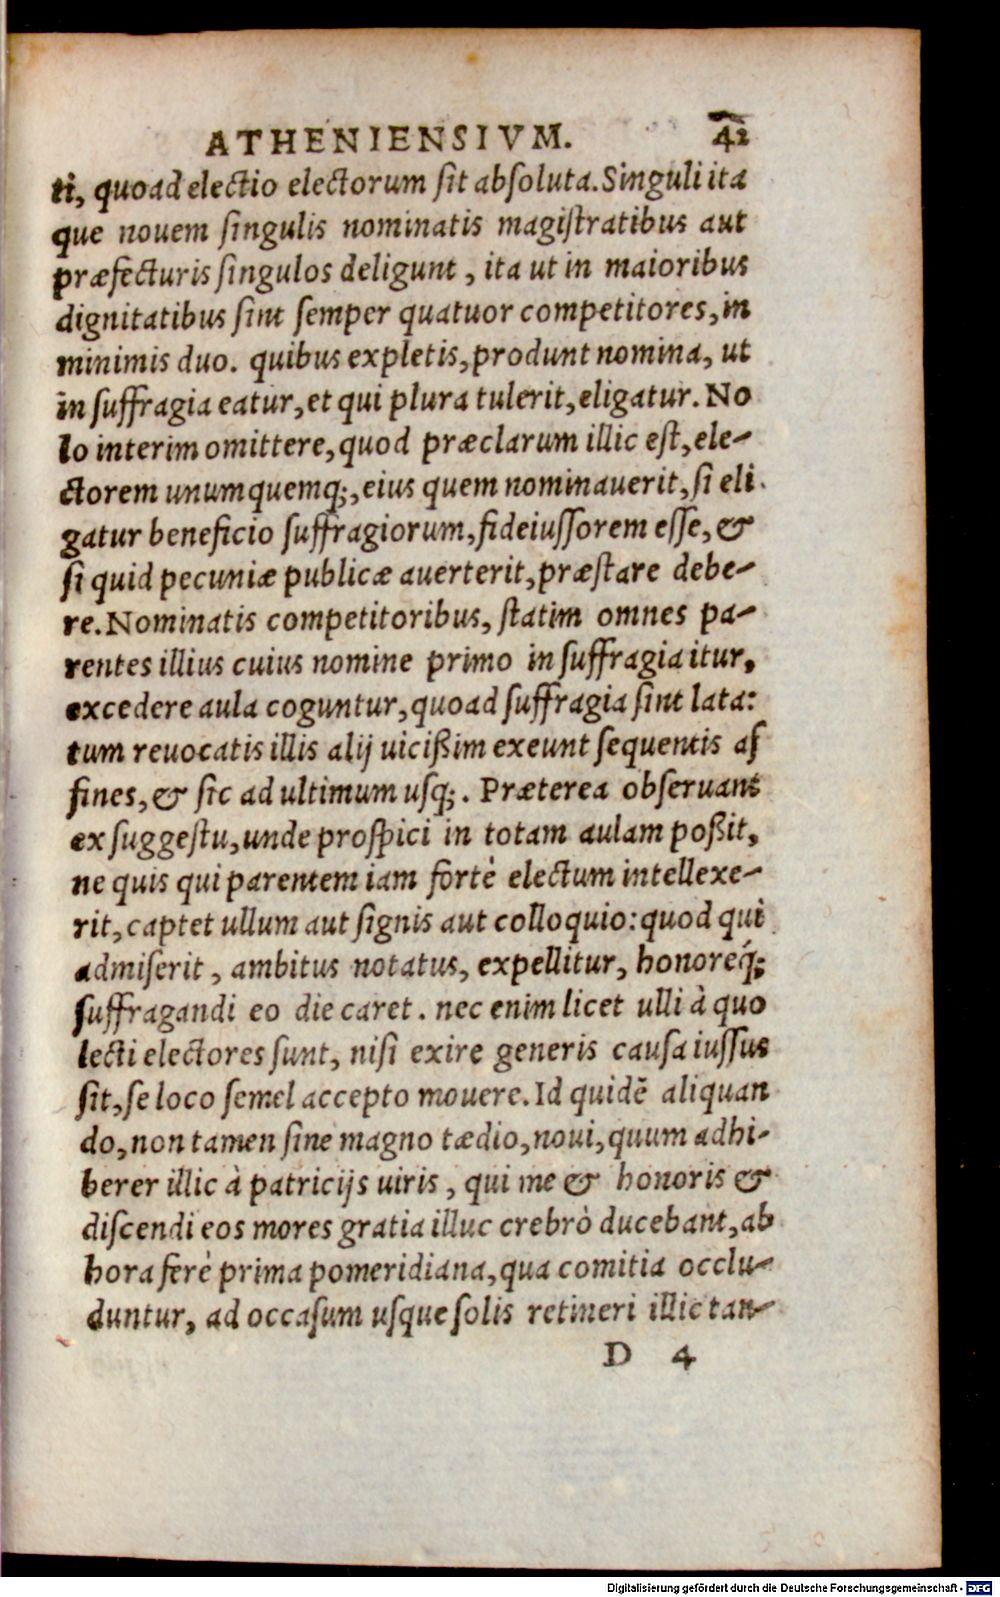 ATHENIENSIVM. 42
ti, quoad electio electorum ſit abſoluta. Singuli ita
que nouem ſingulis nominatis magiſtratibus aut
præfecturis ſingulos deligunt, ita ut in maioribus
dignitatibus ſint ſemper quatuor competitores, in
minimis duo. quibus expletis, produnt nomina, ut
in ſuffragia eatur, et qui plura tulerit, eligatur. No
lo interim omittere, quod præclarum illic eſt, ele-
ctorem unumquemq;, eius quem nominauerit, ſi eli
gatur beneficio ſuffragiorum, fideiuſſorem eſſe, &
ſi quid pecuniæ publicæ auerterit, præſtare debe-
re. Nominatis competitoribus, ſtatim omnes pa-
rentes illius cuius nomine primo in ſuffragia itur,
excedere aula coguntur, quoad ſuffragia ſint lata:
tum reuocatis illis alij uicißim exeunt ſequentis af
fines, & ſic ad ultimum uſq;. Præterea obſeruant
ex ſuggeſtu, unde proſpici in totam aulam poßit,
ne quis qui parentem iam fortè electum intellexe-
rit, captet ullum aut ſignis aut colloquio: quod qui
admiſerit, ambitus notatus, expellitur, honoreq́;
ſuffragandi eo die caret. nec enim licet ulli à quo
lecti electores ſunt, niſi exire generis cauſa iuſſus
ſit, ſe loco ſemel accepto mouere. Id quidẽ aliquan
do, non tamen ſine magno tædio, noui, quum adhi-
berer illic à patricijs uiris, qui me & honoris &
diſcendi eos mores gratia illuc crebrò ducebant, ab
hora ferè prima pomeridiana, qua comitia occlu-
duntur, ad occaſum uſque ſolis retineri illic tan-
D 4
Digitalisierung gefördert durch die Deutsche Forschungsgemeinschaft - DFG